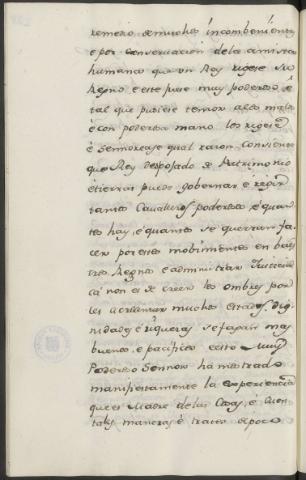 remezio de muchos incombenientes
e por conservacion de la amista
humana que un Rey rigese su
Regno, e este fuese muy poderoso è
tal que pusiese temor a los malos
è con poderosa mano los rigiese
è Sennorease qual razon consiente
que Rey despojado de Patrimonio
è tierras pueda gobernar è regir
tantos Cavalleros poderosos è quan-
tos hay, è quantos se querran fa-
cer por estos mobimientos en bues-
tros Regnos e administrar Justicia
cà non es de creer los ombres por
les acrecentar muchos estados, dig-
nidades è riquezas se fagan mas
buenos, e pacificos esto Muy
Poderoso Sennor ha mostrado
manifiestamente la experiencia
que es Madre de las Cosas, è buen
tales maneras è tratos de poco